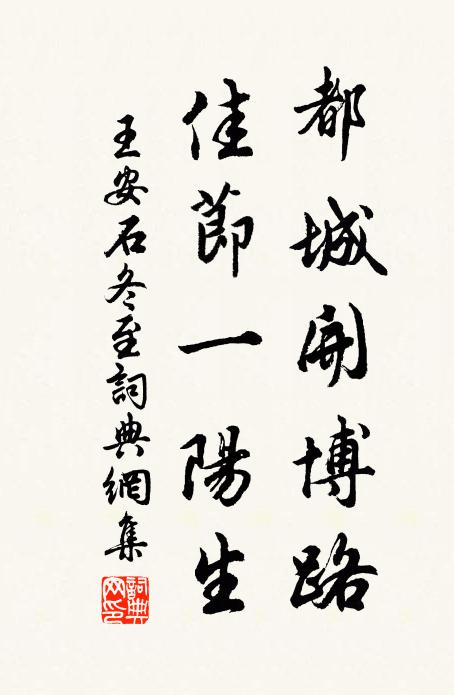 都城開博路
佳節一陽生
王安石冬至詞典網集
詞典
网印